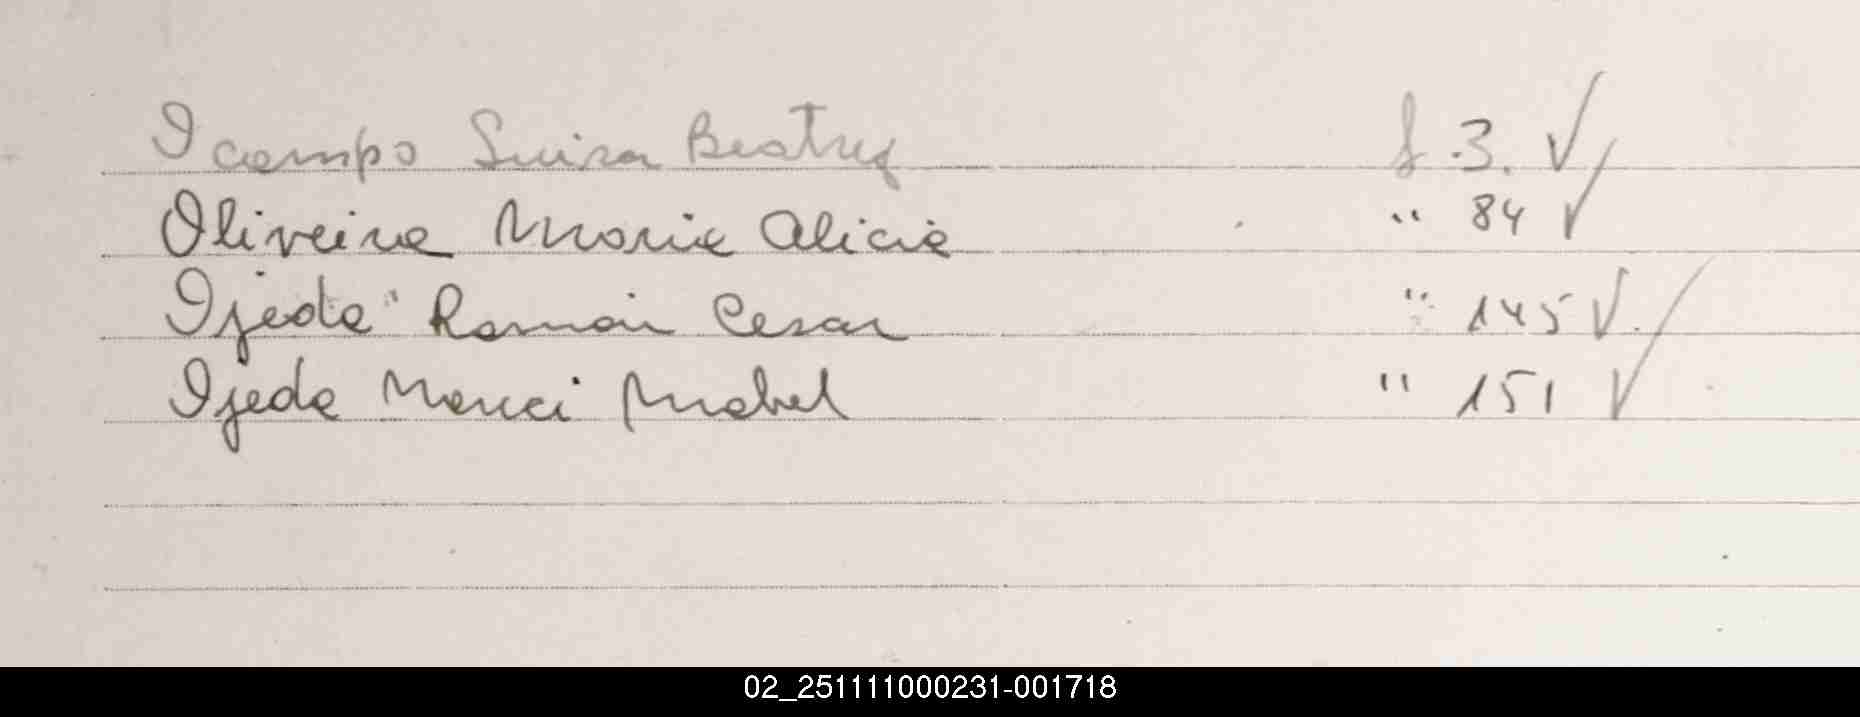 Ocampo Luisa Beatriz f. 3. ✓
Oliveira Maria Alicia " 84 ✓
Ojeda Ramón Cesar " 145 ✓
Ojeda Mabel " 151 ✓
02_251111000231-001718